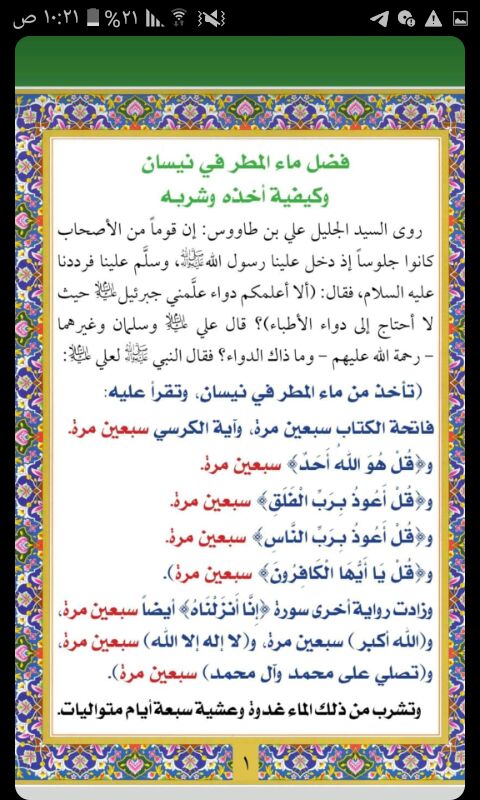 ١٠:٢١ ص ٢١%
فضل ماء المطر في نيسان
وكيفية أخذه وشربه
روى السيد الجليل علي بن طاووس: إن قوماً من الأصحاب
كانوا جلوساً إذ دخل علينا رسول الله ﷺ، وسلَّم علينا فرددنا
عليه السلام، فقال: (ألا أعلمكم دواء علَّمني جبرئيل عليه السلام حيث
لا أحتاج إلى دواء الأطباء)؟ قال علي عليه السلام وسلمان وغيرهما
- رحمة الله عليهم - وما ذاك الدواء؟ فقال النبي ﷺ لعلي عليه السلام:
(تأخذ من ماء المطر في نيسان، وتقرأ عليه:
فاتحة الكتاب سبعين مرة، وآية الكرسي سبعين مرة.
و﴿قُلْ هُوَ اللهُ أَحَدٌ﴾ سبعين مرة.
و﴿قُلْ أَعُوذُ بِرَبِّ الْفَلَقِ﴾ سبعين مرة.
و﴿قُلْ أَعُوذُ بِرَبِّ النَّاسِ﴾ سبعين مرة.
و﴿قُلْ يَا أَيُّهَا الْكَافِرُونَ﴾ سبعين مرة).
وزادت رواية أخرى سورة ﴿إِنَّا أَنزَلْنَاهُ﴾ أيضاً سبعين مرة،
و(الله أكبر) سبعين مرة، و(لا إله إلا الله) سبعين مرة،
و(تصلي على محمد وآل محمد) سبعين مرة).
وتشرب من ذلك الماء غدوة وعشية سبعة أيام متواليات.
١